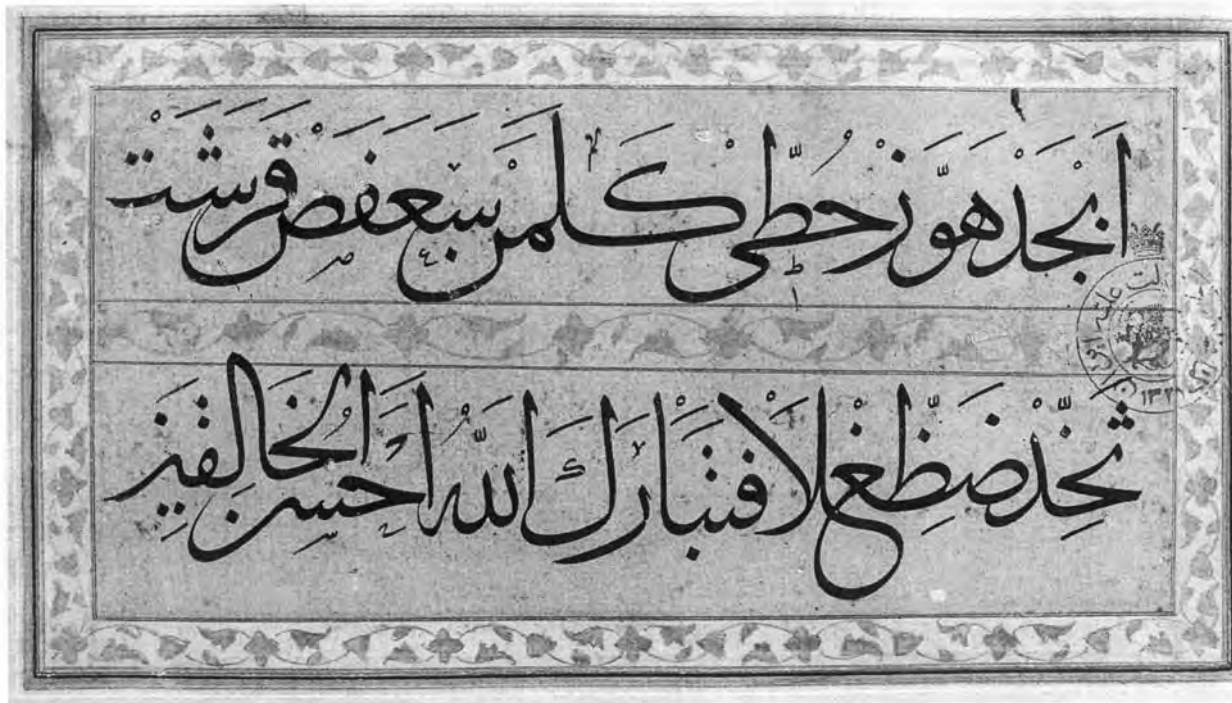 اَبْجَدْ هَوَّزْ حُطِّي كَلَمَنْ سَعَفَصْ قَرَشَتْ
ثَخِّذْ ضَظِّغْ لا فَتَبَارَكَ اللّٰهُ اَحْسَنُ الْخَالِقِينَ